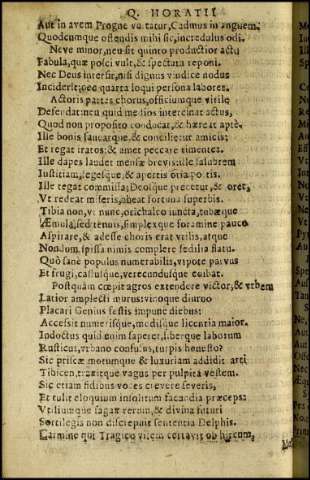 Q. HORATII
Aut in avem Progne vertatur, Cadmus in anguem.
Quodcumque ostendis mihi sic, incredulus odi.
Neve minor, neu sit quinto productior actu
Fabula, quæ posci vult, & spectata reponi.
Nec Deus intersit, nisi dignus vindice nodus
Inciderit: nec quarta loqui persona labores.
Actoris partes chorus, officiumque virile
Defendat: neu quid medios intercinat actus,
Quod non proposito conducat, & hæreat aptè.
Ille bonis faueatque, & concilietur amicis:
Et regat iratos; & amet peccare timentes.
Ille dapes laudet mensæ brevis: ille salubrem
Iustitiam, legesque, & apertis otia portis.
Ille tegat commissa; Deosque precetur, & oret,
Vt redeat miseris, abeat fortuna superbis.
Tibia non, vt nunc, orichalco iuncta, tubæque
Æmula, sed tenuis, simplexque foramine pauco
Aspirare, & adesse choris erat vtilis, atque
Nondum spissa nimis complere sedilia flatu.
Quò sanè populus numerabilis, vtpote parvus
Et frugi, castusque, verecundusque coibat.
Postquàm cœpit agros extendere victor, & vrbem
Latior amplecti murus: vinoque diurno
Placari Genius festis impune diebus:
Accessit numerisque, modisque licentia maior.
Indoctus quid enim saperet, liberque laborum
Rusticus, vrbano confusus, turpis honesto?
Sic priscæ motumque & luxuriam addidit arti
Tibicen, traxitque vagus per pulpita vestem.
Sic etiam fidibus voces crevere severis,
Et tulit eloquium insolitum facundia præceps:
Vtiliumque sagax rerum, & divina futuri
Sortilegis non discrepuit sententia Delphis.
Carmine qui Tragico vilem certavit ob hircum,